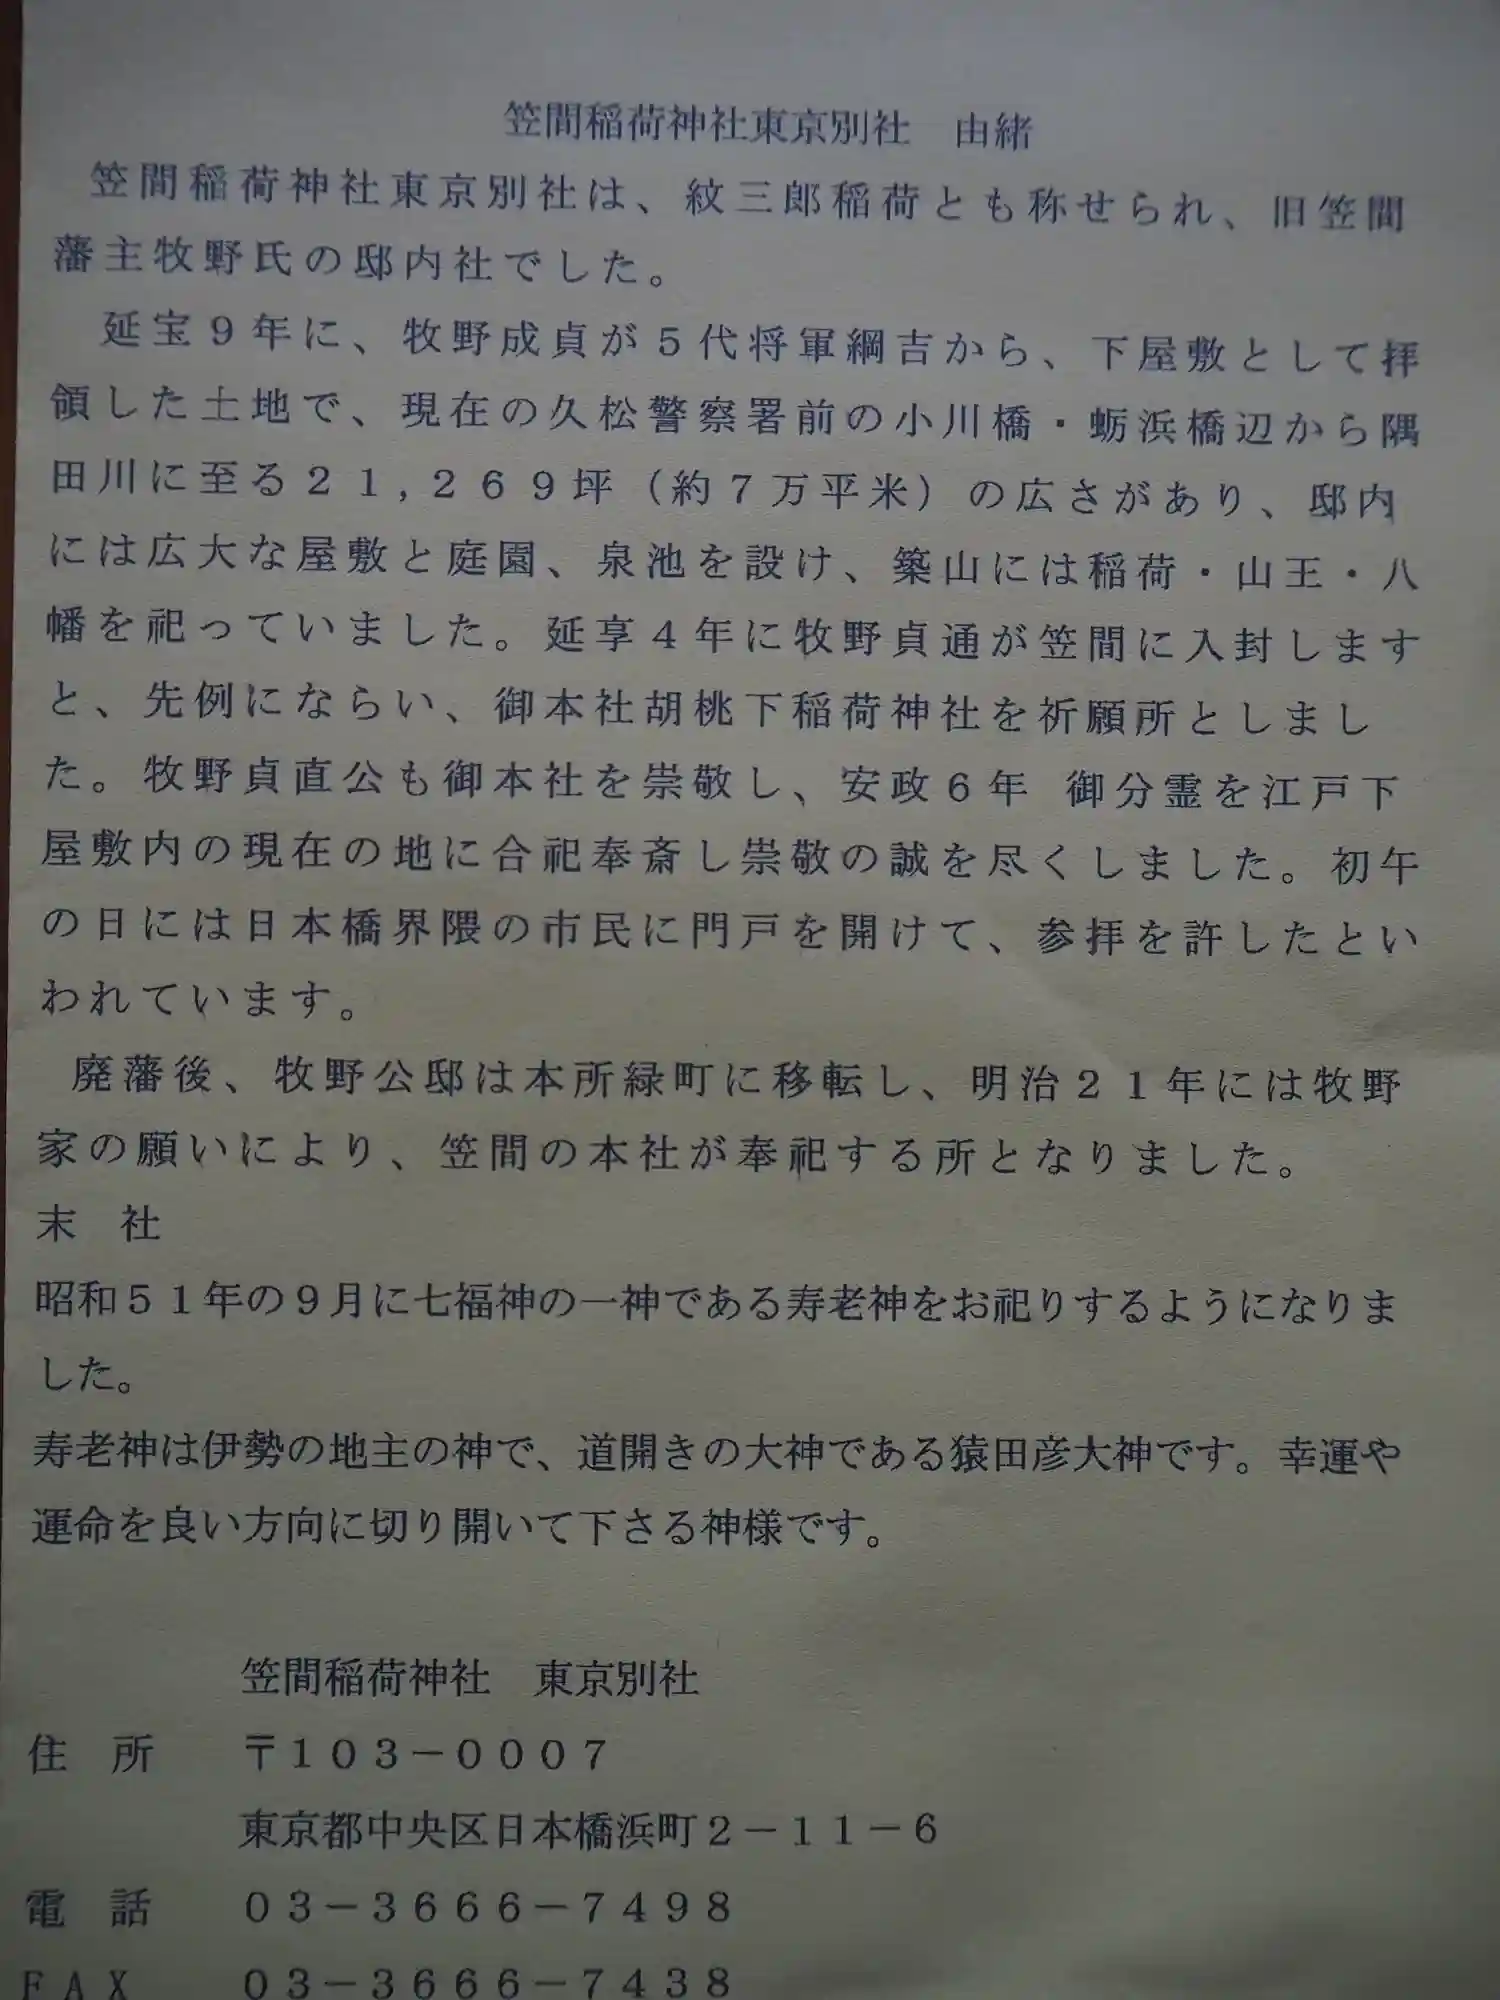 笠間稲荷神社東京別社　由緒
笠間稲荷神社東京別社は、紋三郎稲荷とも称せられ、旧笠間
藩主牧野氏の邸内社でした。
延宝９年に、牧野成貞が５代将軍綱吉から、下屋敷として拝
領した土地で、現在の久松警察署前の小川橋・蛎浜橋辺から隅
田川に至る２１,２６９坪（約７万平米）の広さがあり、邸内
には広大な屋敷と庭園、泉池を設け、築山には稲荷・山王・八
幡を祀っていました。延享４年に牧野貞通が笠間に入封します
と、先例にならい、御本社胡桃下稲荷神社を祈願所としまし
た。牧野貞直公も御本社を崇敬し、安政６年 御分霊を江戸下
屋敷内の現在の地に合祀奉斎し崇敬の誠を尽くしました。初午
の日には日本橋界隈の市民に門戸を開けて、参拝を許したとい
われています。
廃藩後、牧野公邸は本所緑町に移転し、明治２１年には牧野
家の願いにより、笠間の本社が奉祀する所となりました。
末　社
昭和５１年の９月に七福神の一神である寿老神をお祀りするようになりま
した。
寿老神は伊勢の地主の神で、道開きの大神である猿田彦大神です。幸運や
運命を良い方向に切り開いて下さる神様です。
笠間稲荷神社　東京別社
住　所　〒１０３－０００７
東京都中央区日本橋浜町２－１１－６
電　話　０３－３６６６－７４９８
ＦＡＸ　０３－３６６６－７４３８